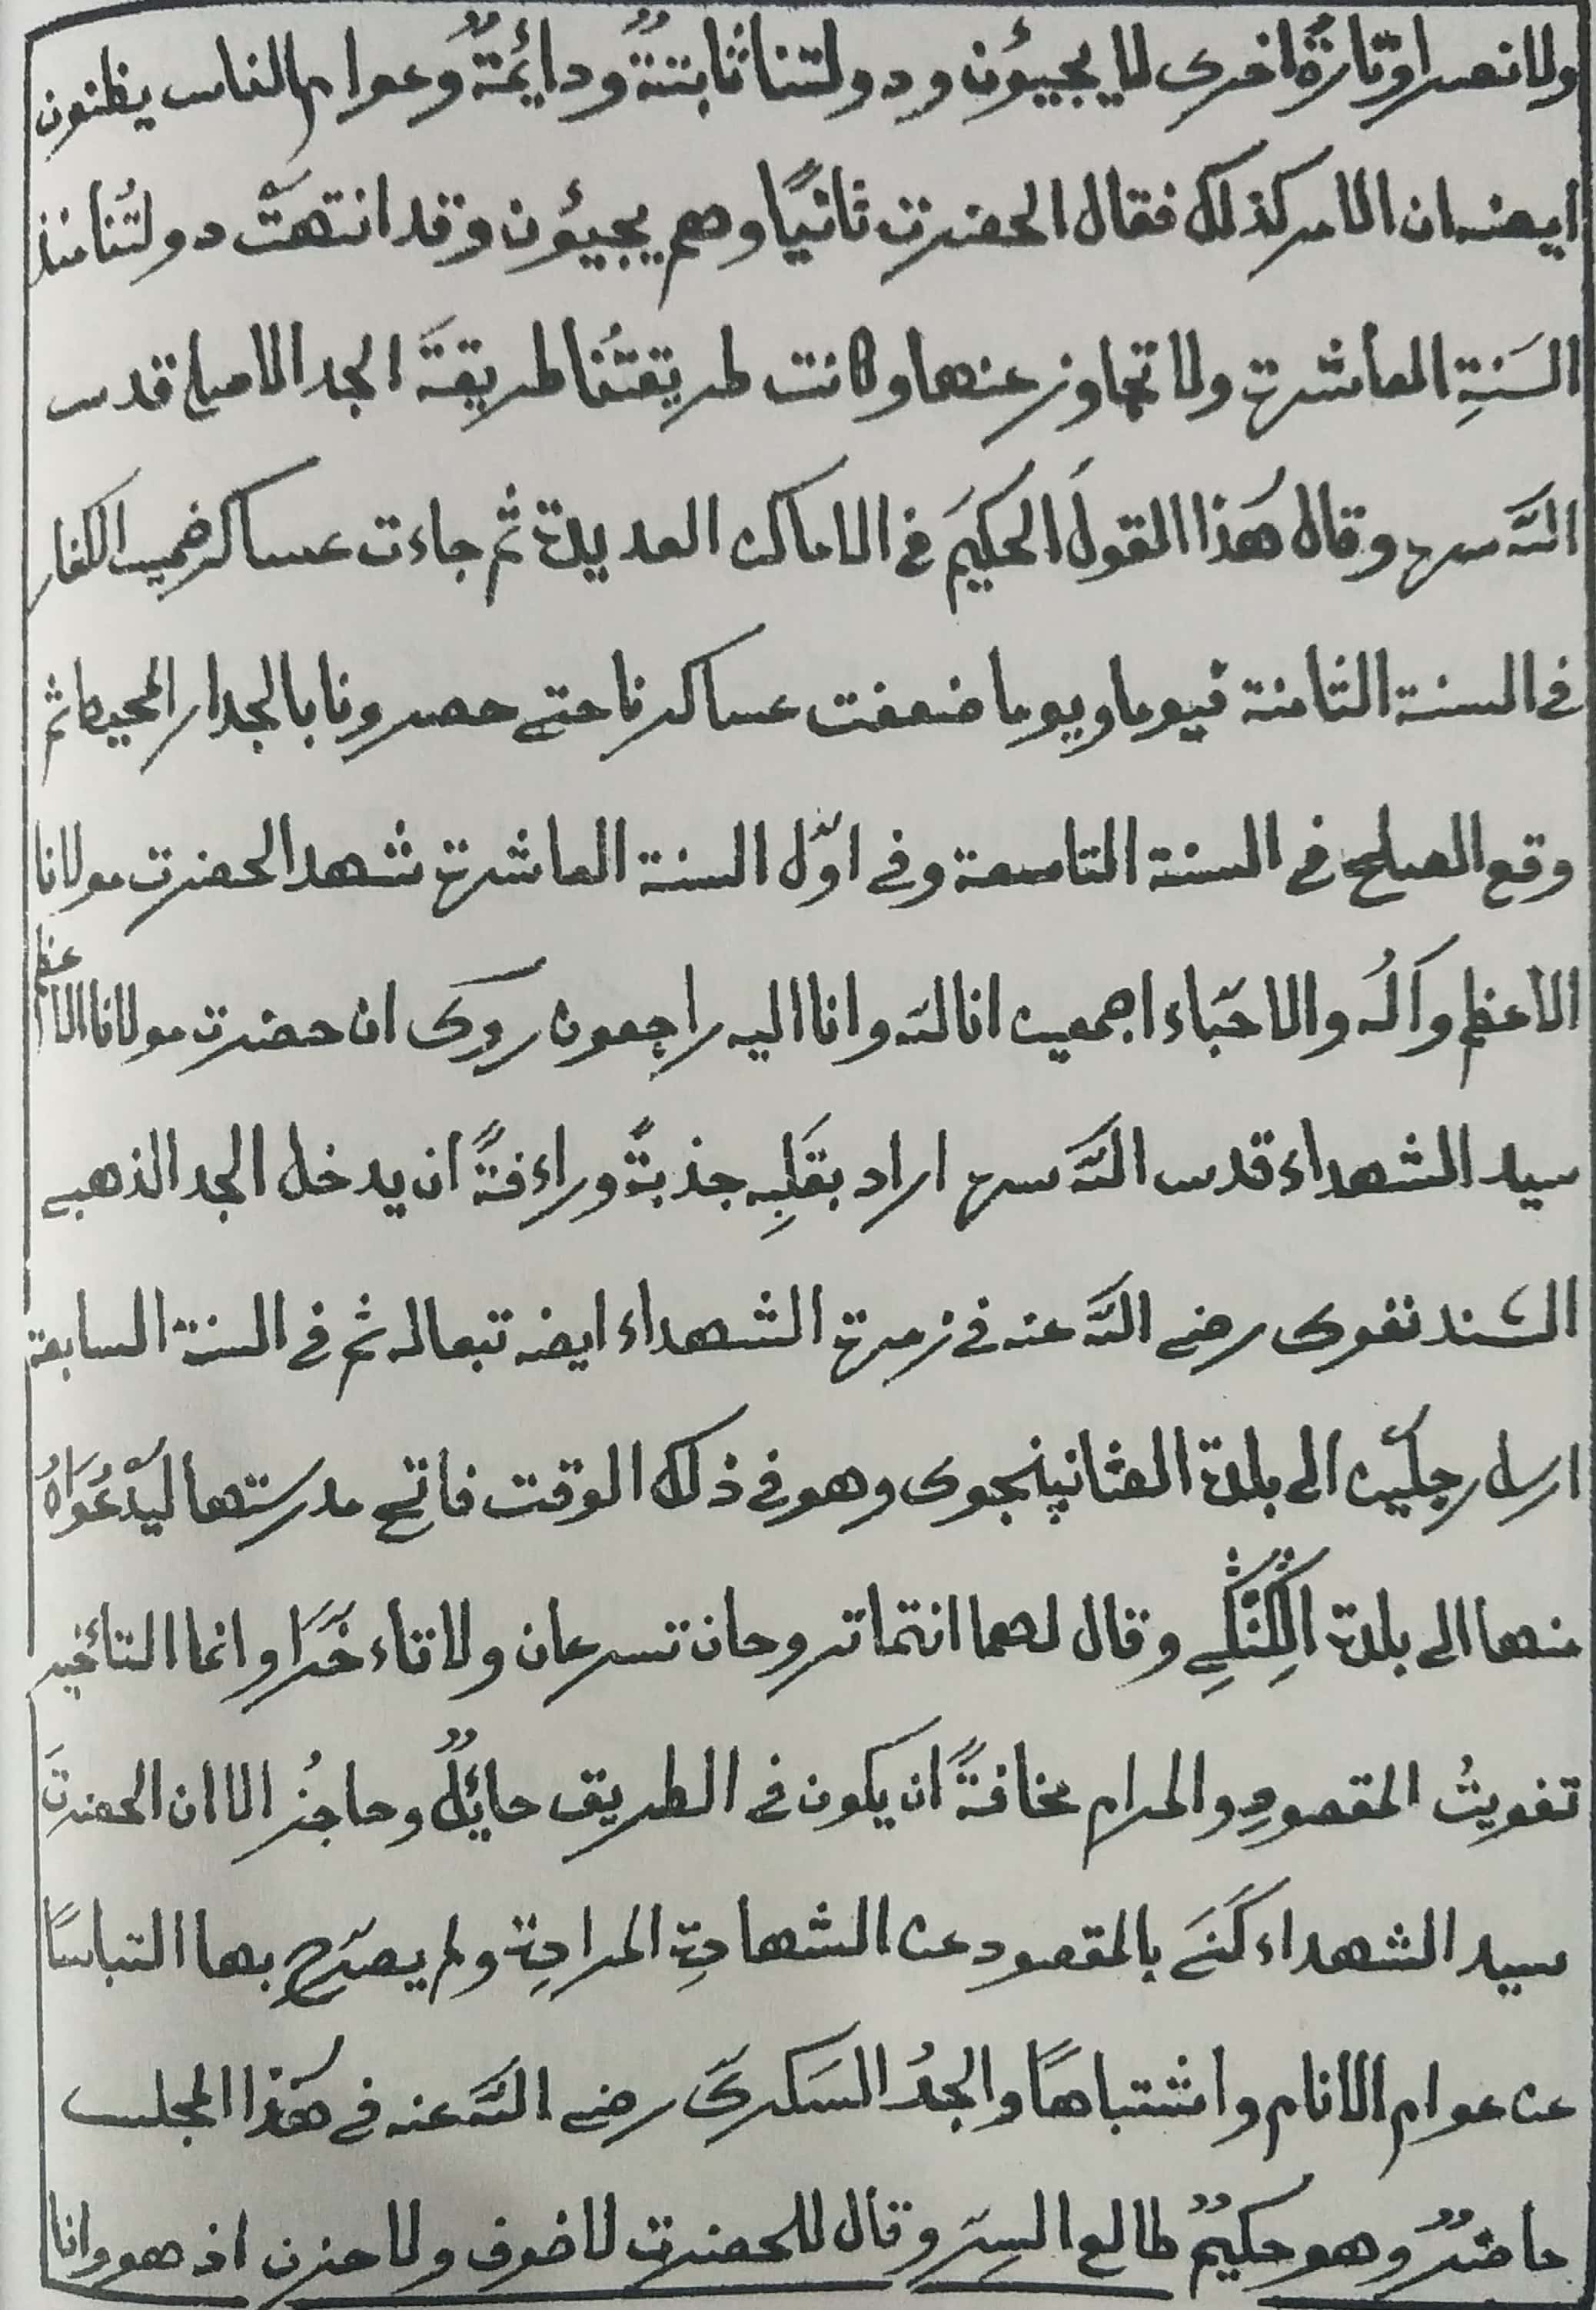 ولا نصرا وتارةً اخرى لا يجيئون ودولتنا ثابتةٌ ودائمةٌ وعوام الناس يظنون
ايضا ان الامر كذلك فقال الحضرت ثانيًا وهم يجيئون وقد انتهتْ دولتُنا منذ
السَنةِ العاشرة ولا تجاوز عنها وكانت طريقتُنا طريقةَ الجد الاصلي قدس
اللّٰه سره وقال هٰذا القولَ الحكيمَ في الاماكن العديدة ثم جاءت عساكر ضميب الكفار
في السنة الثامنة فيوما ويوما ضعفت عساكرنا حتے حصرونا بالجدار المحيط ثم
وقع الصلح في السنة التاسعة وفي اوّل السنة العاشرة شهد الحضرت مولانا
الاعظم وآلُه والاحبّاء اجمعين انا للّٰه وانا اليه راجعون روى ان حضرت مولانا الاعظم
سيد الشهداء قدس اللّٰه سره اراد بقَلبِه جذبةً وراءفةً ان يدخل الجد الذهبے
الشندنفوى رضے اللّٰه عنه في زمرة الشهداء ايضا تبعا له ثم في السنة السابعة
ارسل رجلَين الى بلدة العثانپنجوى وهو في ذلك الوقت فاتح مدرستها ليَدْعُوَاهُ
منها الى بلدة الِكِنْكِے وقال لهما انتما تروحان تسرعان ولا تتاءخّرا وانما التائخير
تفويتُ المقصودِ والمرام مخافةً ان يكون في الطريق حائلٌ وحاجزُ الا ان الحضرتَ
سيد الشهداء كَنَے بالمقصود عن الشهادةِ المرادةِ ولم يصرّح بها التباسًا
عن عوام الانام واشتباهًا والجدُ السَكرىَ رضے اللّٰه عنه في هٰذا المجلس
حاضرٌ وهو حكيمٌ طالع السِرّ وقال للحضرت لا خوف ولا حزن اذ هو وانا